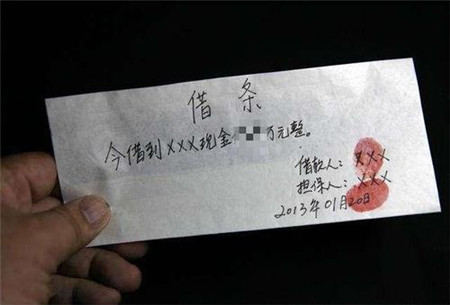 借条
今借到XXX现金 万元整。
借款人：XXX
担保人：XXX
2013年01月20日